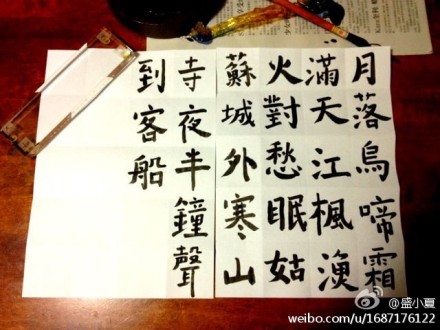 月落烏啼霜
滿天江楓漁
火對愁眠姑
蘇城外寒山
寺夜半鐘聲
到客船
@盛小夏
weibo.com/u/1687176122